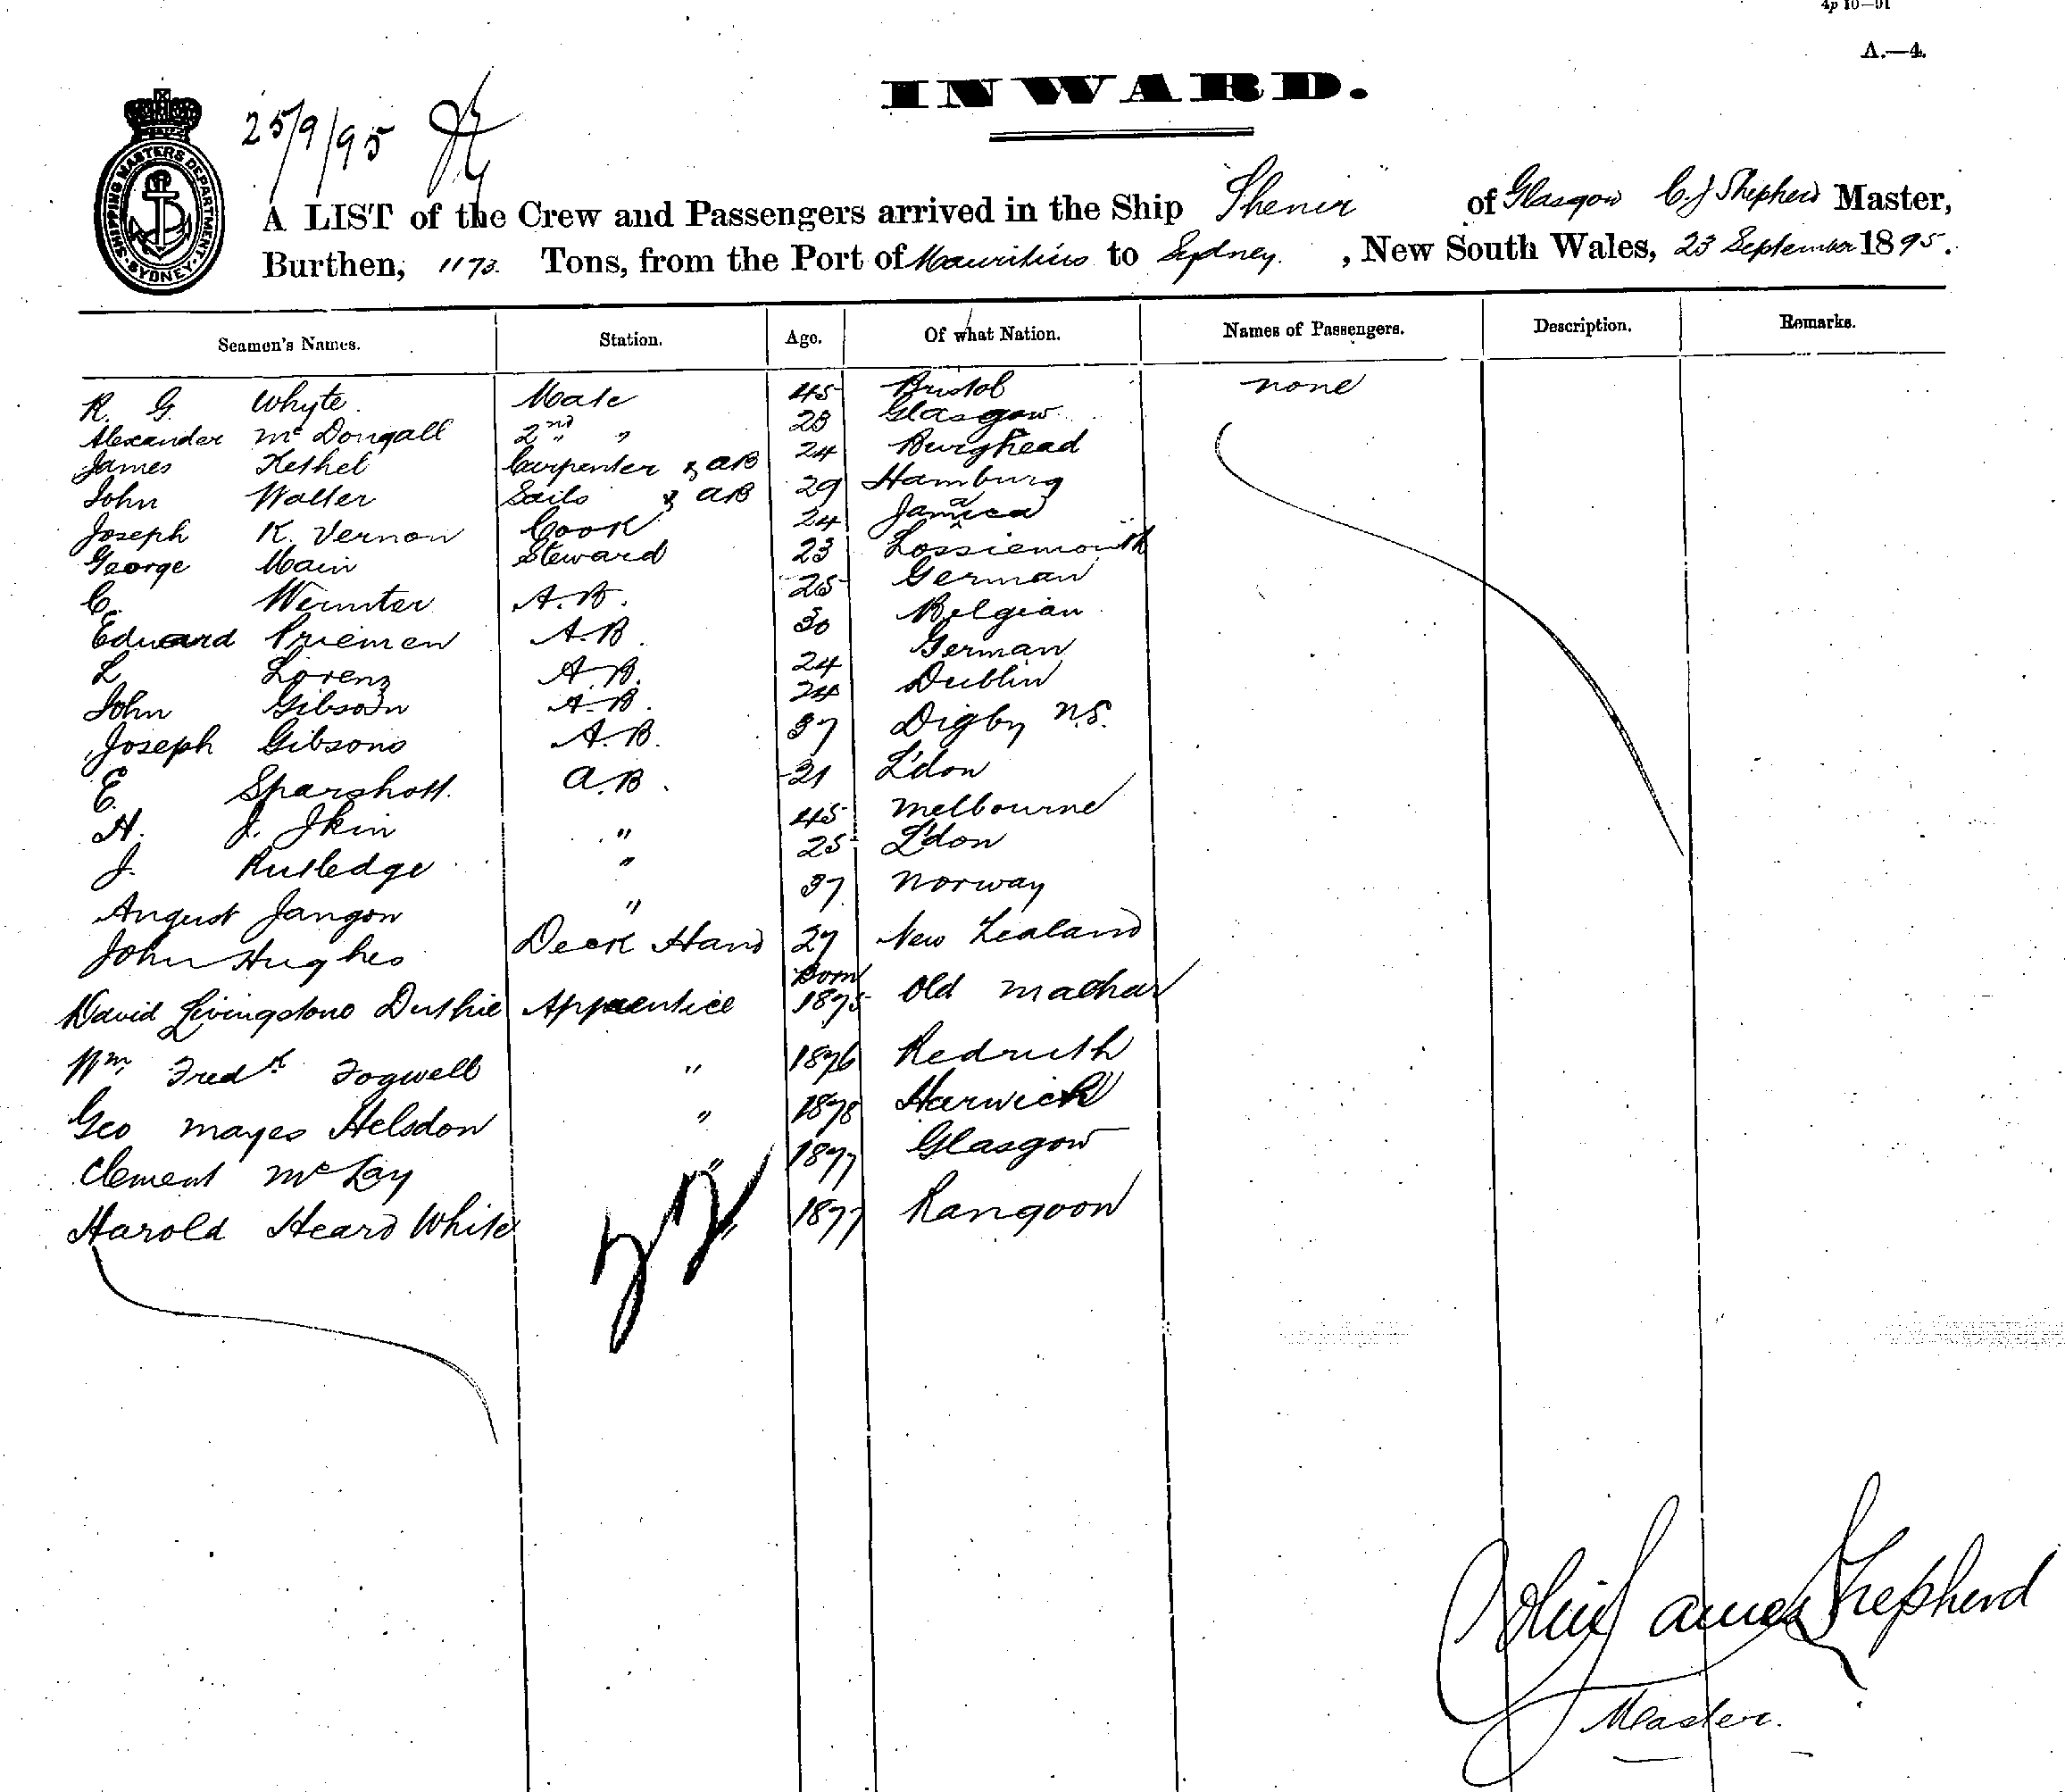 4p 10—91
A.—4.
INWARD.
25/9/95
SHIPPING MASTERS DEPARTMENT SYDNEY
A LIST of the Crew and Passengers arrived in the Ship "Shenir" of Glasgow C. J Shepherd Master,
Burthen, 1173. Tons, from the Port of Mauritius to Sydney. , New South Wales, 23 September 1895.
Seamen's Names. Station. Age. Of what Nation. Names of Passengers. Description. Remarks.
R. G. Whyte. Mate 45 Bristol none
Alexander Mc Dougall 2nd " " 28 Glasgow
James Kethel Carpenter & AB 24 Burghead
John Walter Sails & AB 29 Hamburg
Joseph K. Vernon Cook 24 Jamaica
George Main Steward 23 Lossiemouth
C. A.B. 25 German
Edward Priemen A.B. 30 Belgian
L Lorenz A.B. 24 German
John Gibson A.B. 24 Dublin
Joseph Gibsons A.B. 37 Digby N.S.
E. Sparshott. A.B. 21 L'don
H. J. Ikin " 45 Melbourne
J. Rutledge " 25 L'don
August Jangon " 37 Norway
John Hughes Deck Hand 27 New Zealand
David Livingstone Duthie Apprentice Born 1875 Old Machar
Wm Fredk Fogwell " 1876 Redruth
Geo Mayes Helsdon " 1878 Harwich
Clement McLay " 1877 Glasgow
Harold Heard White " 1877 Rangoon
Colin James Shepherd
Master.